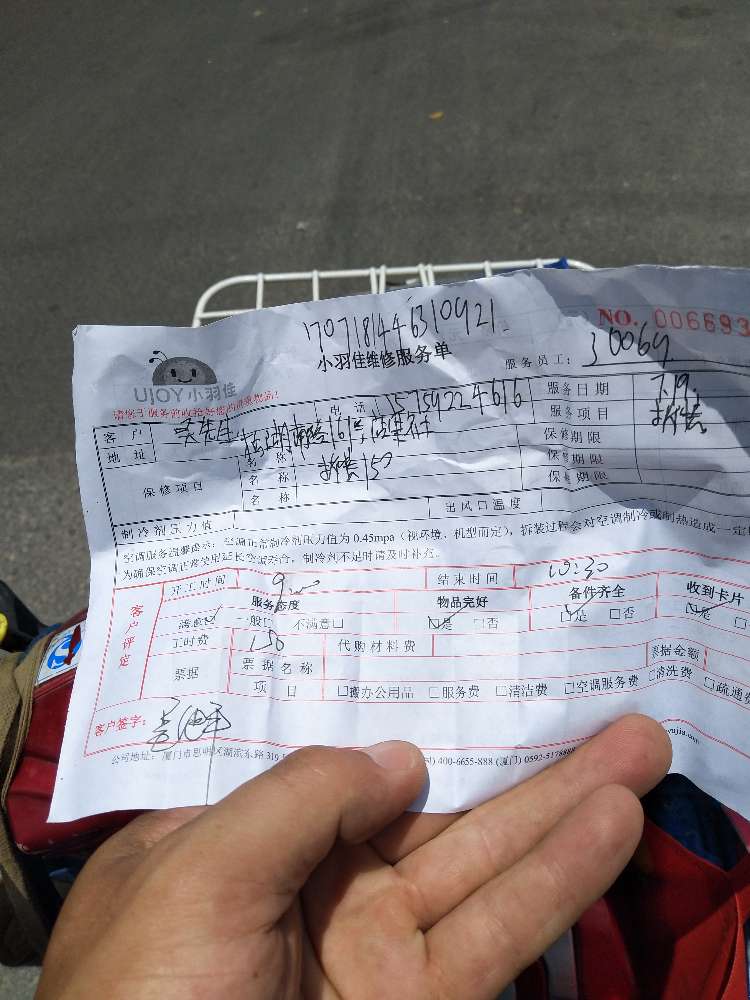 170718446310921
NO. 006693
小羽佳维修服务单
服务员工: J0064
UJOY小羽佳
客户 吴先生 电话 15759224616 服务日期 7.19.
地址 服务项目 拆装
保修项目 名称 保修期限
名称 拆装150 保修期限
名称 保修期限
制冷剂压力值 出风口温度
空调服务温馨提示: 空调正常制冷剂压力值为 0.45mpa (视环境、机型而定), 拆装过程会对空调制冷或制热造成一定
为确保空调正常使用延长空调寿命, 制冷剂不足时请及时补充。
客户评定
开工时间 9:00 结束时间 10:30
服务态度 物品完好 备件齐全 收到卡片
满意☑ 一般□ 不满意□ ☑是 □否 ☑是 □否 ☑是 □
工时费 150 代购材料费
票据 票据名称 票据金额
项目 □搬办公用品 □服务费 □清洁费 □空调服务费 □清洗费 □疏通费
客户签字:
公司地址: 厦门市思明区湖滨东路 319 400-6655-888 (厦门) 0592-5178888